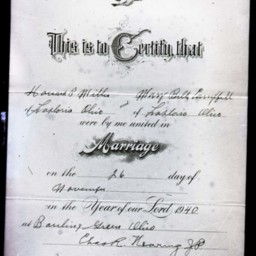 This is to Certify that
Howard P. Mills Mary Belle Campbell
of Fostoria Ohio of Fostoria Ohio
were by me united in
Marriage
on the 26 day of
November
in the Year of our Lord 1940.
at Bowling Green Ohio
Chas R. Nearing J.P.